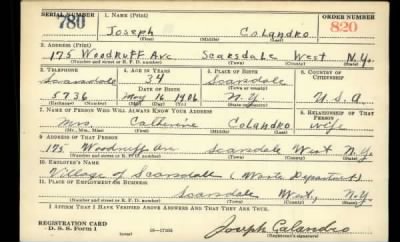 SERIAL NUMBER 1. NAME (Print) ORDER NUMBER
780 Joseph Colandro 820
(First) (Middle) (Last)
2. ADDRESS (Print)
175 Woodruff Ave Scarsdale West N.Y.
(Number and street or R. F. D. number) (Town) (County) (State)
3. TELEPHONE 4. AGE IN YEARS 5. PLACE OF BIRTH 6. COUNTRY OF CITIZENSHIP
Scarsdale 34 Scarsdale
DATE OF BIRTH (Town or county)
5736 May 16 1906 N.Y. U.S.A
(Mo.) (Day) (Yr.) (State or country)
7. NAME OF PERSON WHO WILL ALWAYS KNOW YOUR ADDRESS 8. RELATIONSHIP OF THAT PERSON
Mrs. Catherine Colandro wife
(Mr., Mrs., Miss) (First) (Middle) (Last)
9. ADDRESS OF THAT PERSON
175 Woodruff Ave Scarsdale West N.Y.
(Number and street or R. F. D. number) (Town) (County) (State)
10. EMPLOYER'S NAME
Village of Scarsdale (Waste Department)
11. PLACE OF EMPLOYMENT OR BUSINESS
Scarsdale West, N.Y.
(Number and street or R. F. D. number) (Town) (County) (State)
I AFFIRM THAT I HAVE VERIFIED ABOVE ANSWERS AND THAT THEY ARE TRUE.
REGISTRATION CARD
D. S. S. Form 1 Joseph Calandro
(over) (Registrant's signature)